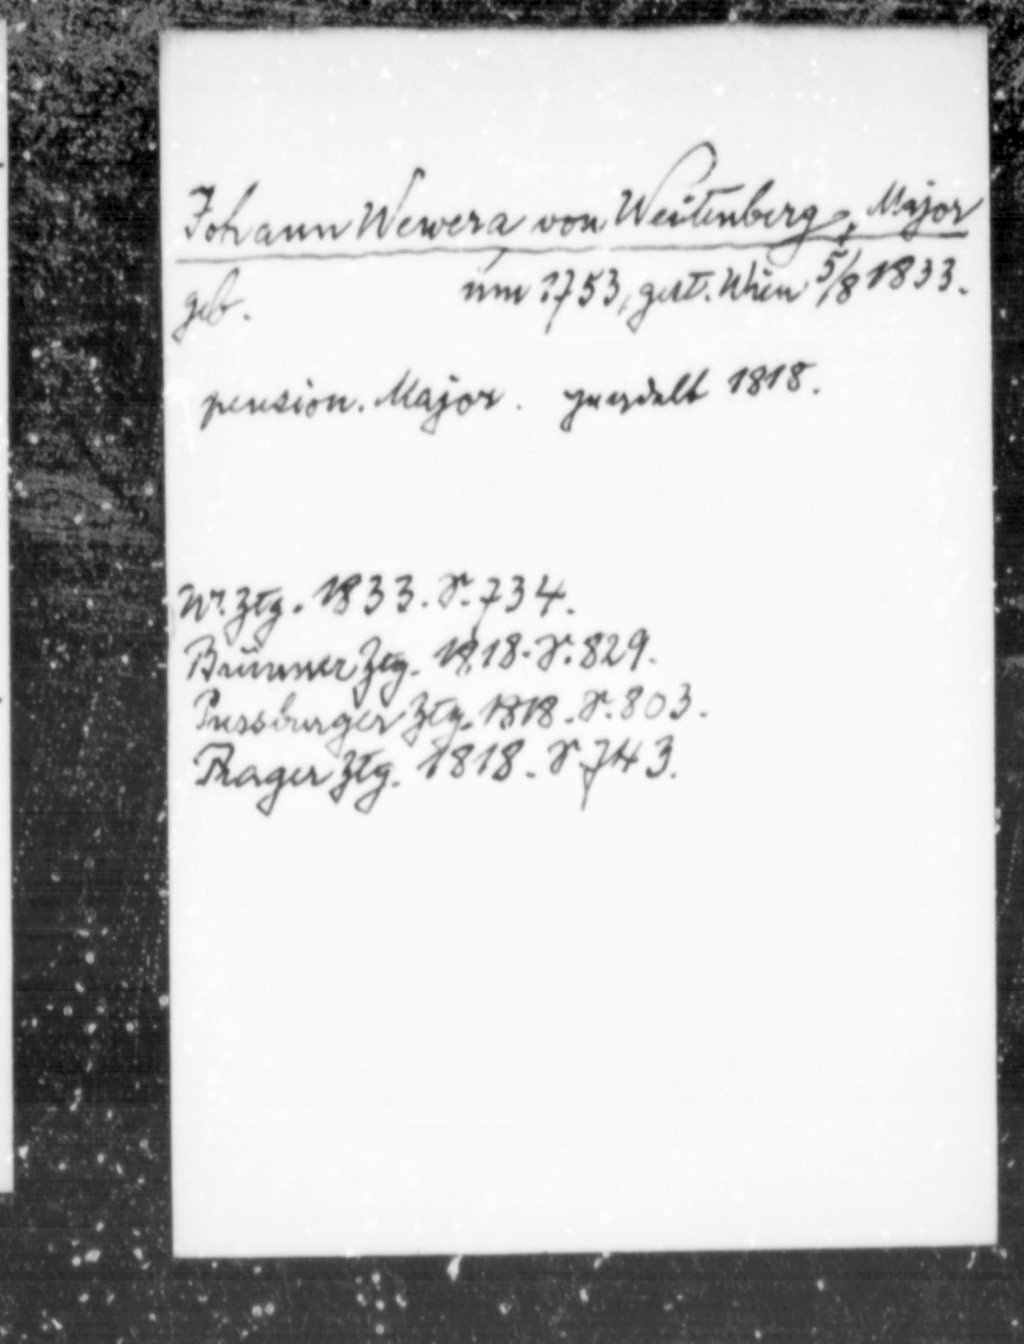 Johann Wewera von Weitenberg, Major
geb. um 1753, gest. Wien 5/8 1833.
pension. Major. geadelt 1818.
Wr. Ztg. 1833. S. 734.
Brünner Ztg. 1818. S. 829.
Pressburger Ztg. 1818. S. 803.
Prager Ztg. 1818. S. 743.